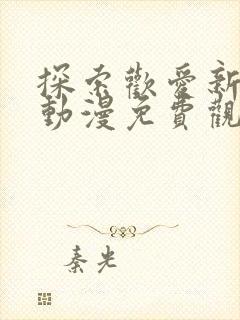 探索歡愛新
動漫免費觀
秦光